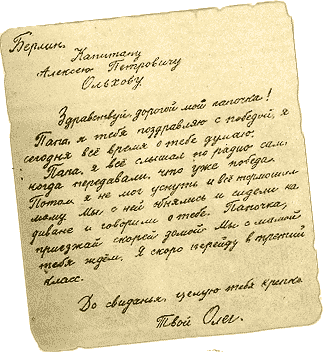 Берлин.
Капитану
Алексею Петровичу
Ольхову.
Здравствуй, дорогой мой папочка!
Папа, я тебя поздравляю с победой, я
сегодня всё время о тебе думаю.
Папа, я всё слышал по радио сам,
когда передавали, что уже победа.
Потом я не мог уснуть и всё тормошил
маму. Мы с ней обнялись и сидели на
диване и говорили о тебе. Папочка,
приезжай скорей домой. Мы с мамой
тебя ждём. Я скоро перейду в третий
класс.
До свиданья, целую тебя крепко.
Твой Олег.